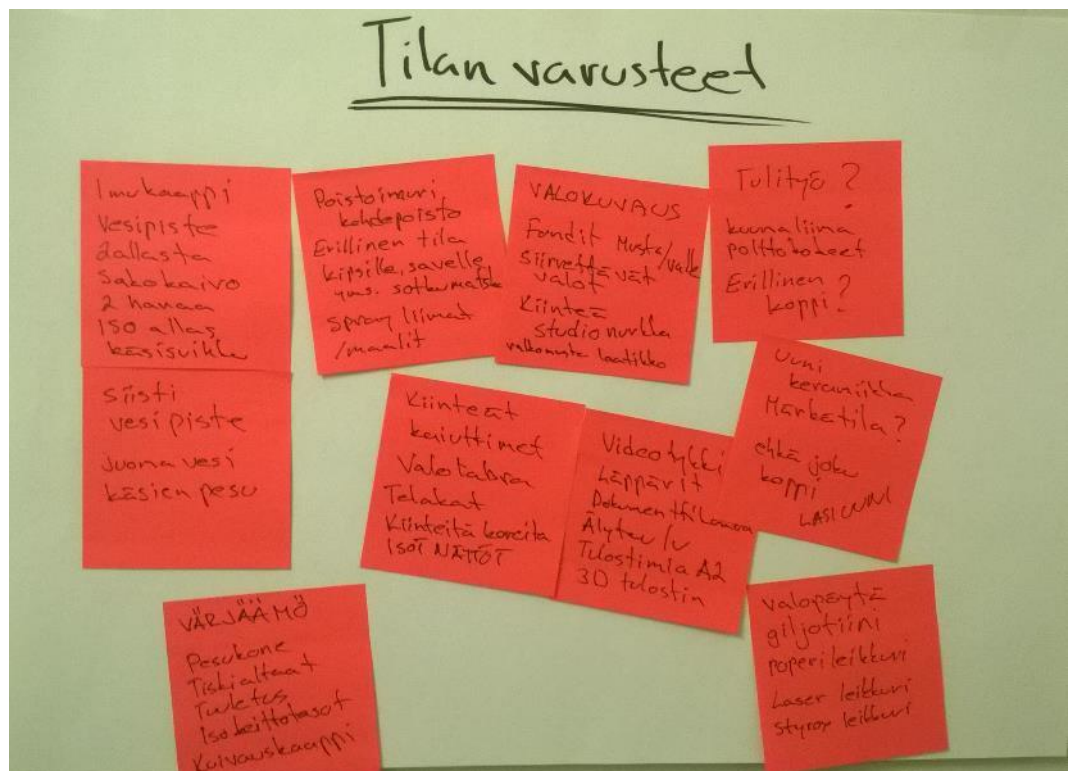 Tilan varusteet
Imukaappi
Vesipiste
2allasta
Sakokaivo
2 hanaa
ISO allas
käsisuihku
Poistoimuri
kohdepoisto
Erillinen tila
kipsille, savelle
yms.
spray liimat
/maalit
VALOKUVAUS
Fondit Musta/valk
Siirrettävät
valot
Kiinteä
studio nurkka
laatikko
Tulityö?
kuumaliima
polttokoheet
Erillinen
koppi?
Siisti
vesipiste
Juoma vesi
käsien pesu
Kiinteät
kaiuttimet
Telakat
Kiinteitä koneita
ISOT NÄYTÖT
Videotykki
Läppärit
Älytaulu
Tulostimia A2
3D tulostin
Uuni
keramiikka
Märkätila?
ehkä joku
koppi
LASIUUNI
VÄRJÄÄMÖ
Pesukone
Tiskialtaat
Tuuletus
Iso keittotasot
Kuivauskaappi
Valopöytä
giljotiini
paperileikkuri
Laser leikkuri
styrox leikkuri